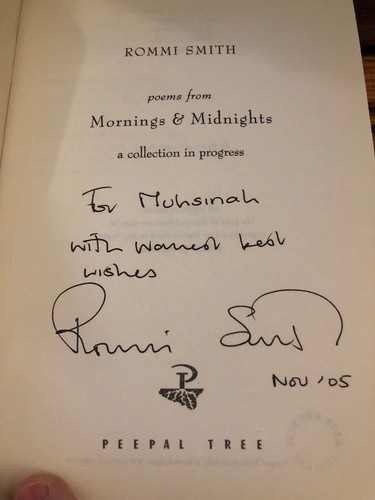 ROMMI SMITH
poems from
Mornings & Midnights
a collection in progress
For Muhsinah
with warmest best
wishes
Rommi Smith
Nov '05
PEEPAL TREE